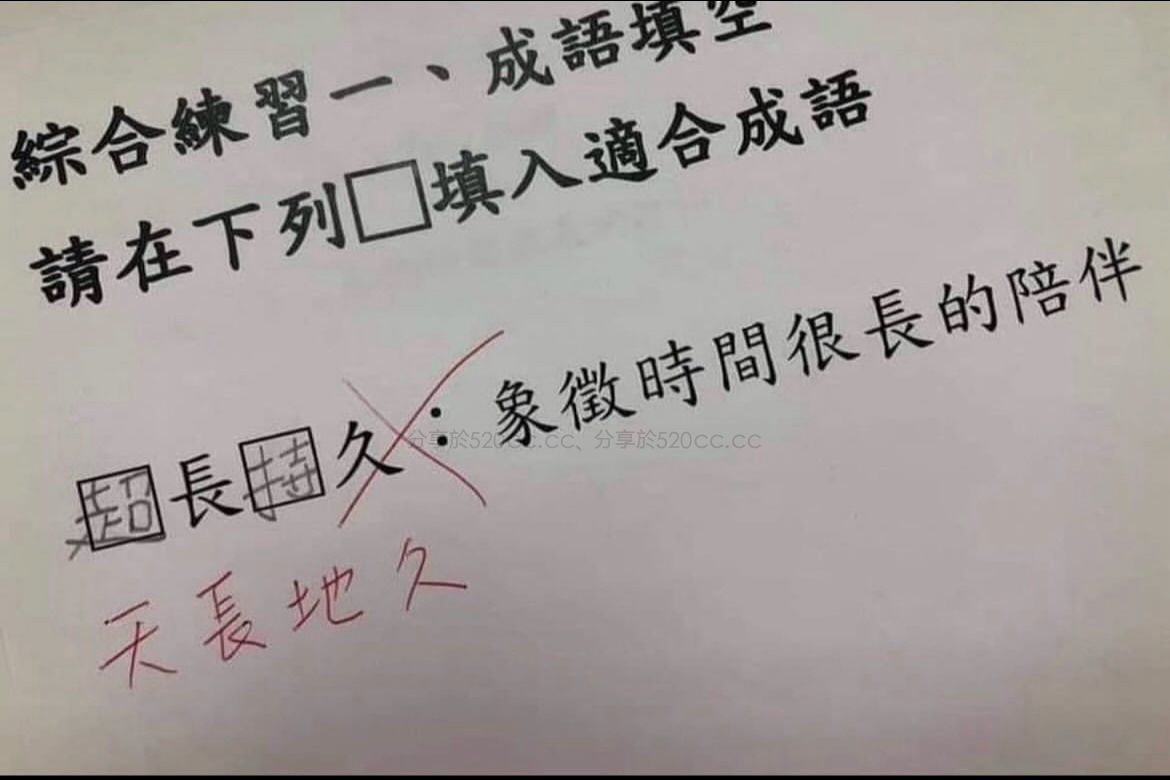 綜合練習一、成語填空
請在下列□填入適合成語
超長持久：象徵時間很長的陪伴
分享於520cc.cc、分享於520cc.cc
天長地久